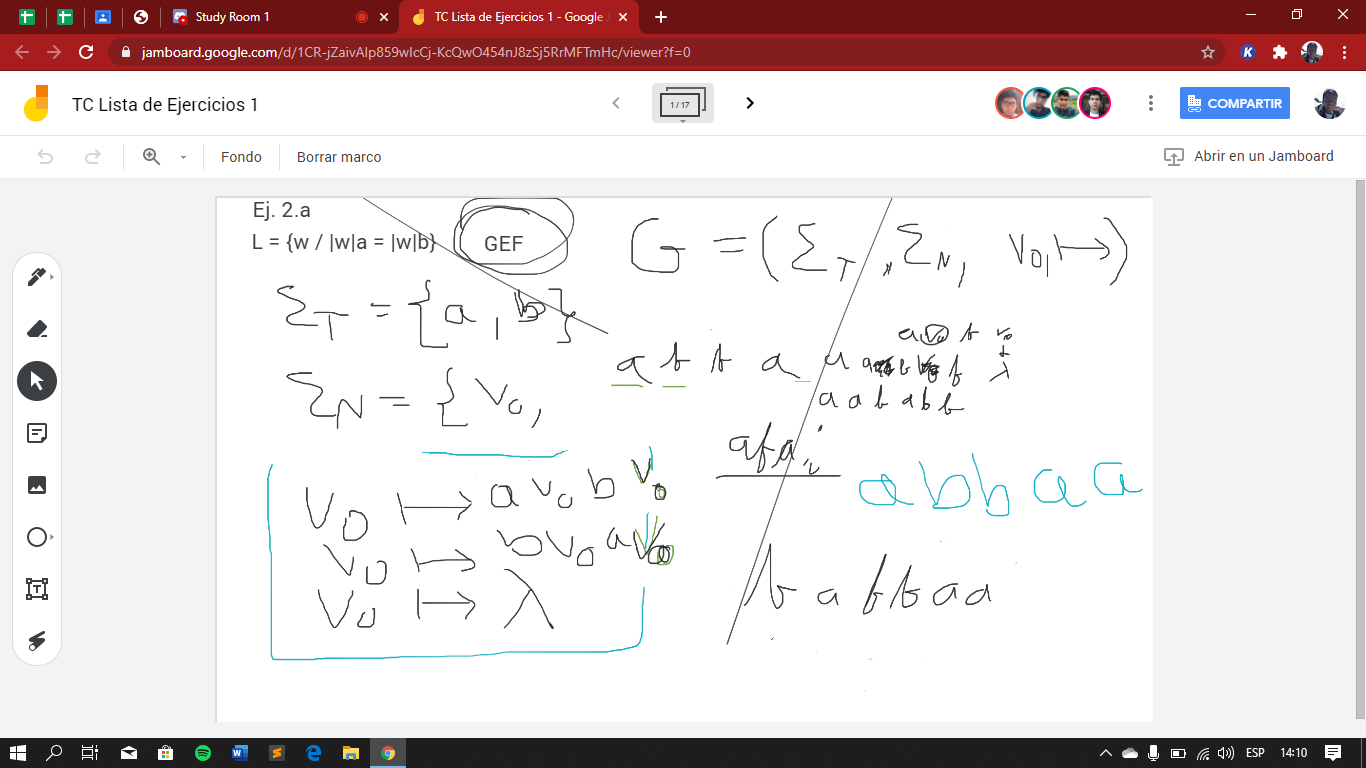 Study Room 1
TC Lista de Ejercicios 1 - Google J
jamboard.google.com/d/1CR-jZaivAlp859wIcCj-KcQwO454nJ8zSj5RrMFTmHc/viewer?f=0
TC Lista de Ejercicios 1
1 / 17
COMPARTIR
Fondo
Borrar marco
Abrir en un Jamboard
Ej. 2.a
L = {w / |w|a = |w|b}
GEF
G = (Σ_T, Σ_N, V₀, ↦)
Σ_T = {a, b}
Σ_N = {V₀,
a b b a a
a V₀ b V₀
λ
a a b a b b
V₀ ↦ a V₀ b V₀
V₀ ↦ b V₀ a V₀
V₀ ↦ λ
a b b a a
b a b b a a
ESP
14:10